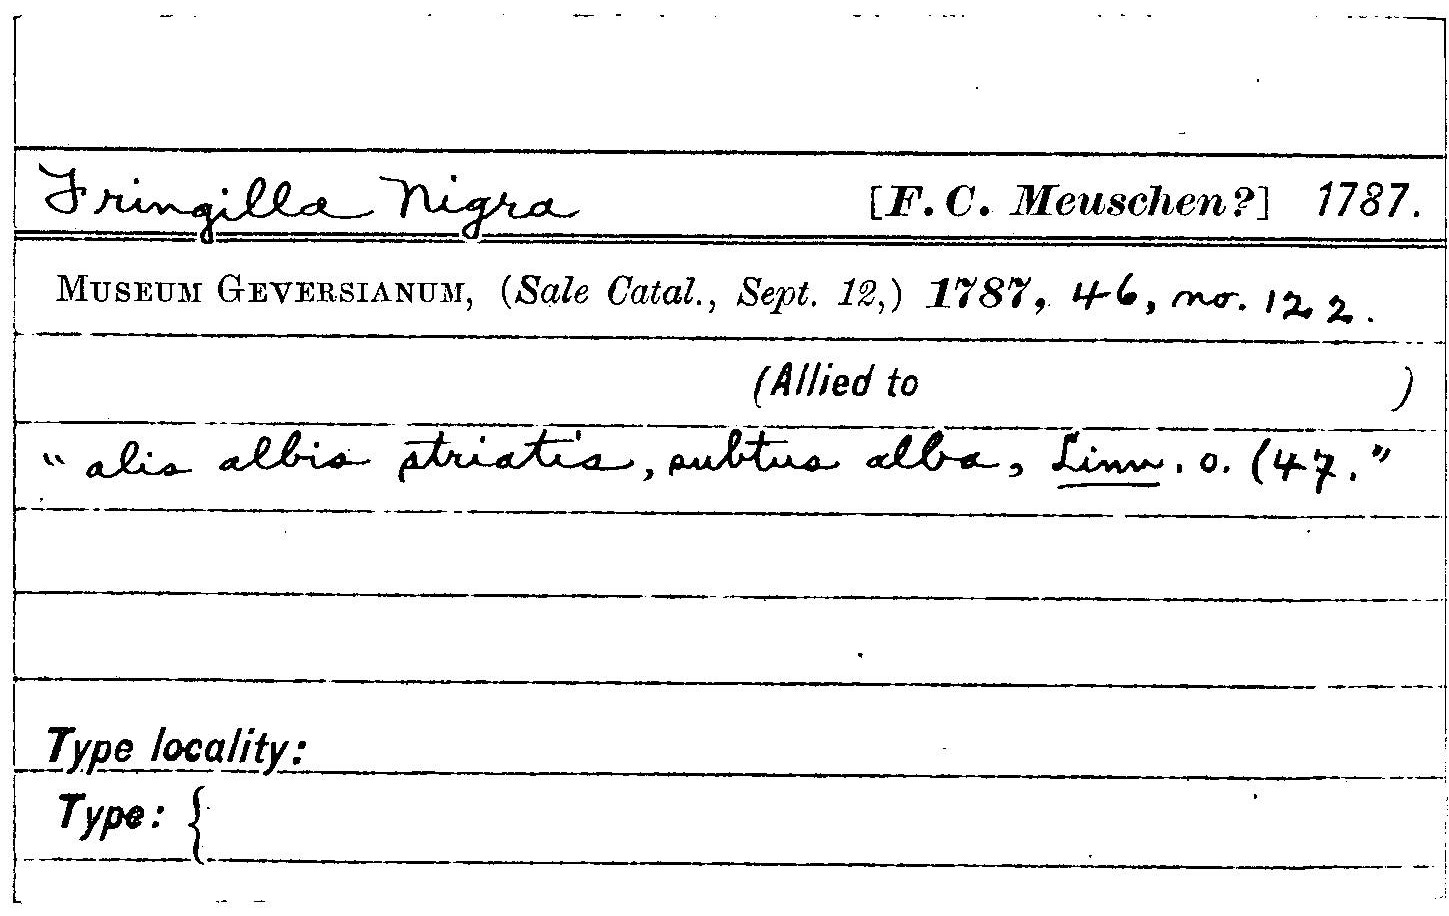 Fringilla Nigra [F. C. Meuschen?] 1787.
MUSEUM GEVERSIANUM, (Sale Catal., Sept. 12,) 1787, 46, no. 122.
(Allied to )
"alis albis striatis, subtus alba, Linn. o. (47."
Type locality:
Type: {